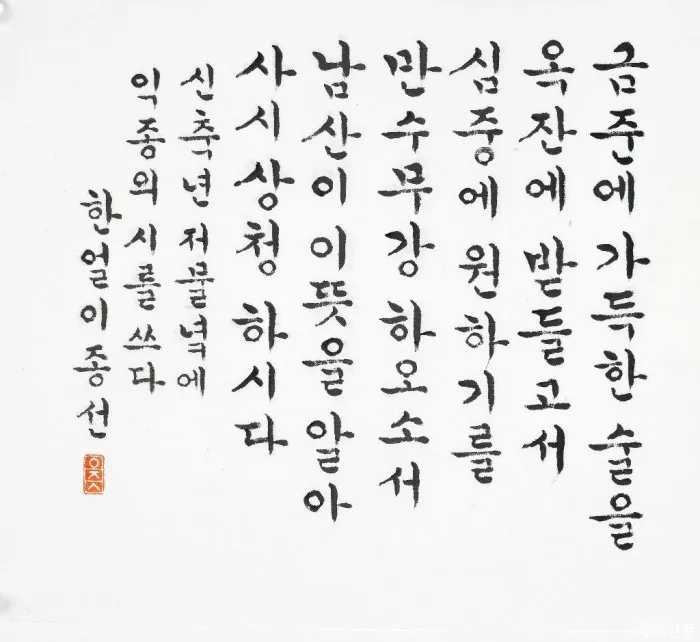 금준에 가득한 술을
옥잔에 받들고서
심중에 원하기를
만수무강 하오소서
남산이 이뜻을 알아
사시상청 하시다
신축년 저물녘에
익종의 시를 쓰다
한얼 이종선